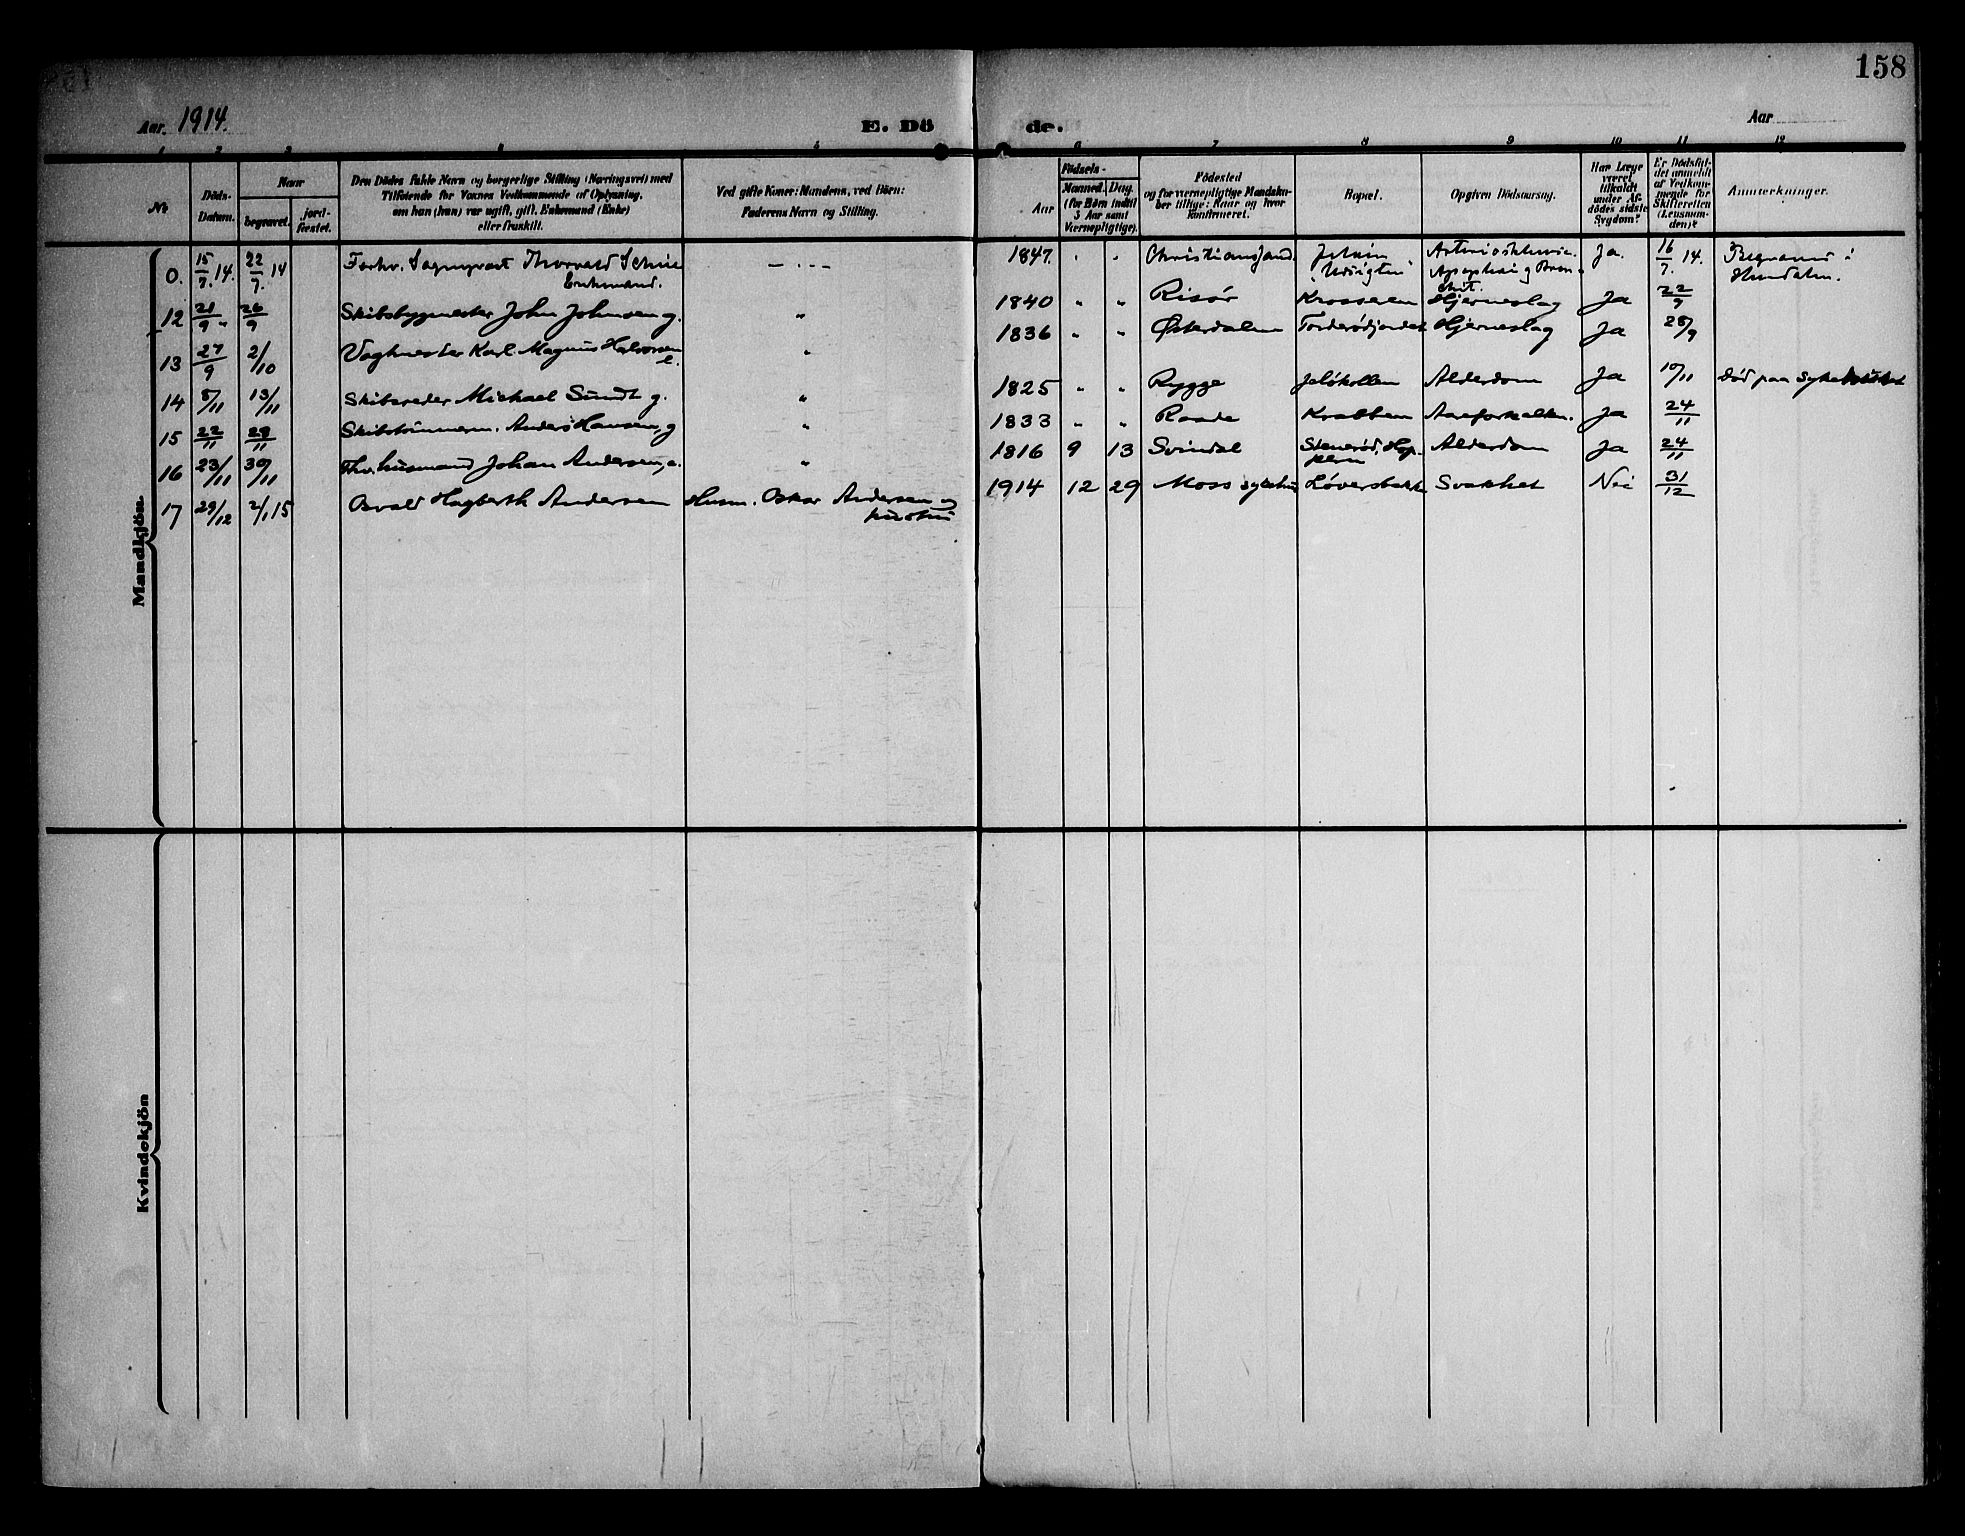 158
Aar. 1914.
E. Döde.
Aar
1 2 3 4 5 6 7 8 9 10 11 12
No.
Döds-Datum.
Naar
begravet.
jord-fæstet.
Den Dödes fulde Navn og borgerlige Stilling (Næringsvei) med
Tilföiende for Voxnes Vedkommende af Oplysning,
om han (hun) var ugift, gift, Enkemand (Enke)
eller fraskilt.
Ved gifte Koner: Mandens, ved Börn:
Faderens Navn og Stilling.
Födsels-
Aar
Maaned. Dag.
(for Börn indtil
3 Aar samt
Værnepligtige).
Födested
og for værnepligtige Mandska-
ber tillige: Naar og hvor
konfirmeret.
Bopæl.
Opgiven Dödsaarsag.
Har Læge
været
tilkaldt
under Af-
dödes sidste
Sygdom?
Er Dödsfal-
det anmeldt
af Vedkom-
mende for
Skifteretten
(Lensman-
den)?
Anmærkninger.
Mandkjön
0. 15/7. 14. 22/7. 14 Forhv. Sogneprest Thorvald Enkemand. — . - - 1847. Christianssand. Ja. 16/7. 14.
12 21/9 " 26/9 Skibsbygmester John Johnsen g. " 1840 " " Risør Krosseren Hjerneslag Ja 22/9
13 27/9 2/10 Vogtmester Karl Magnus Halvorsen e. " 1836 " " Østerdalen Torderødjordet Hjerneslag Ja 28/9
14 8/11 13/11 Skibsreder Michael Sundt g. " 1825 " " Rygge Jeløkollen Alderdom Ja 10/11 Død paa sykehuset
15 22/11 28/11 Skibstømmerm. Anders Hansen, g " 1833 " " Raade Krabben Aareforkalkn. Ja 24/11
16 23/11 30/11 Fhv. husmand Johan Andersen, e. " 1816 9 13 Svindal Stenerød, Alderdom Ja 24/11
17 29/12 2/1 15 Osvald Hagbarth Andersen Husm. Oskar Andersen og hustru 1914 12 29 Moss sykehus Løversbakke Svakhet Nei 31/12
Kvindekjön